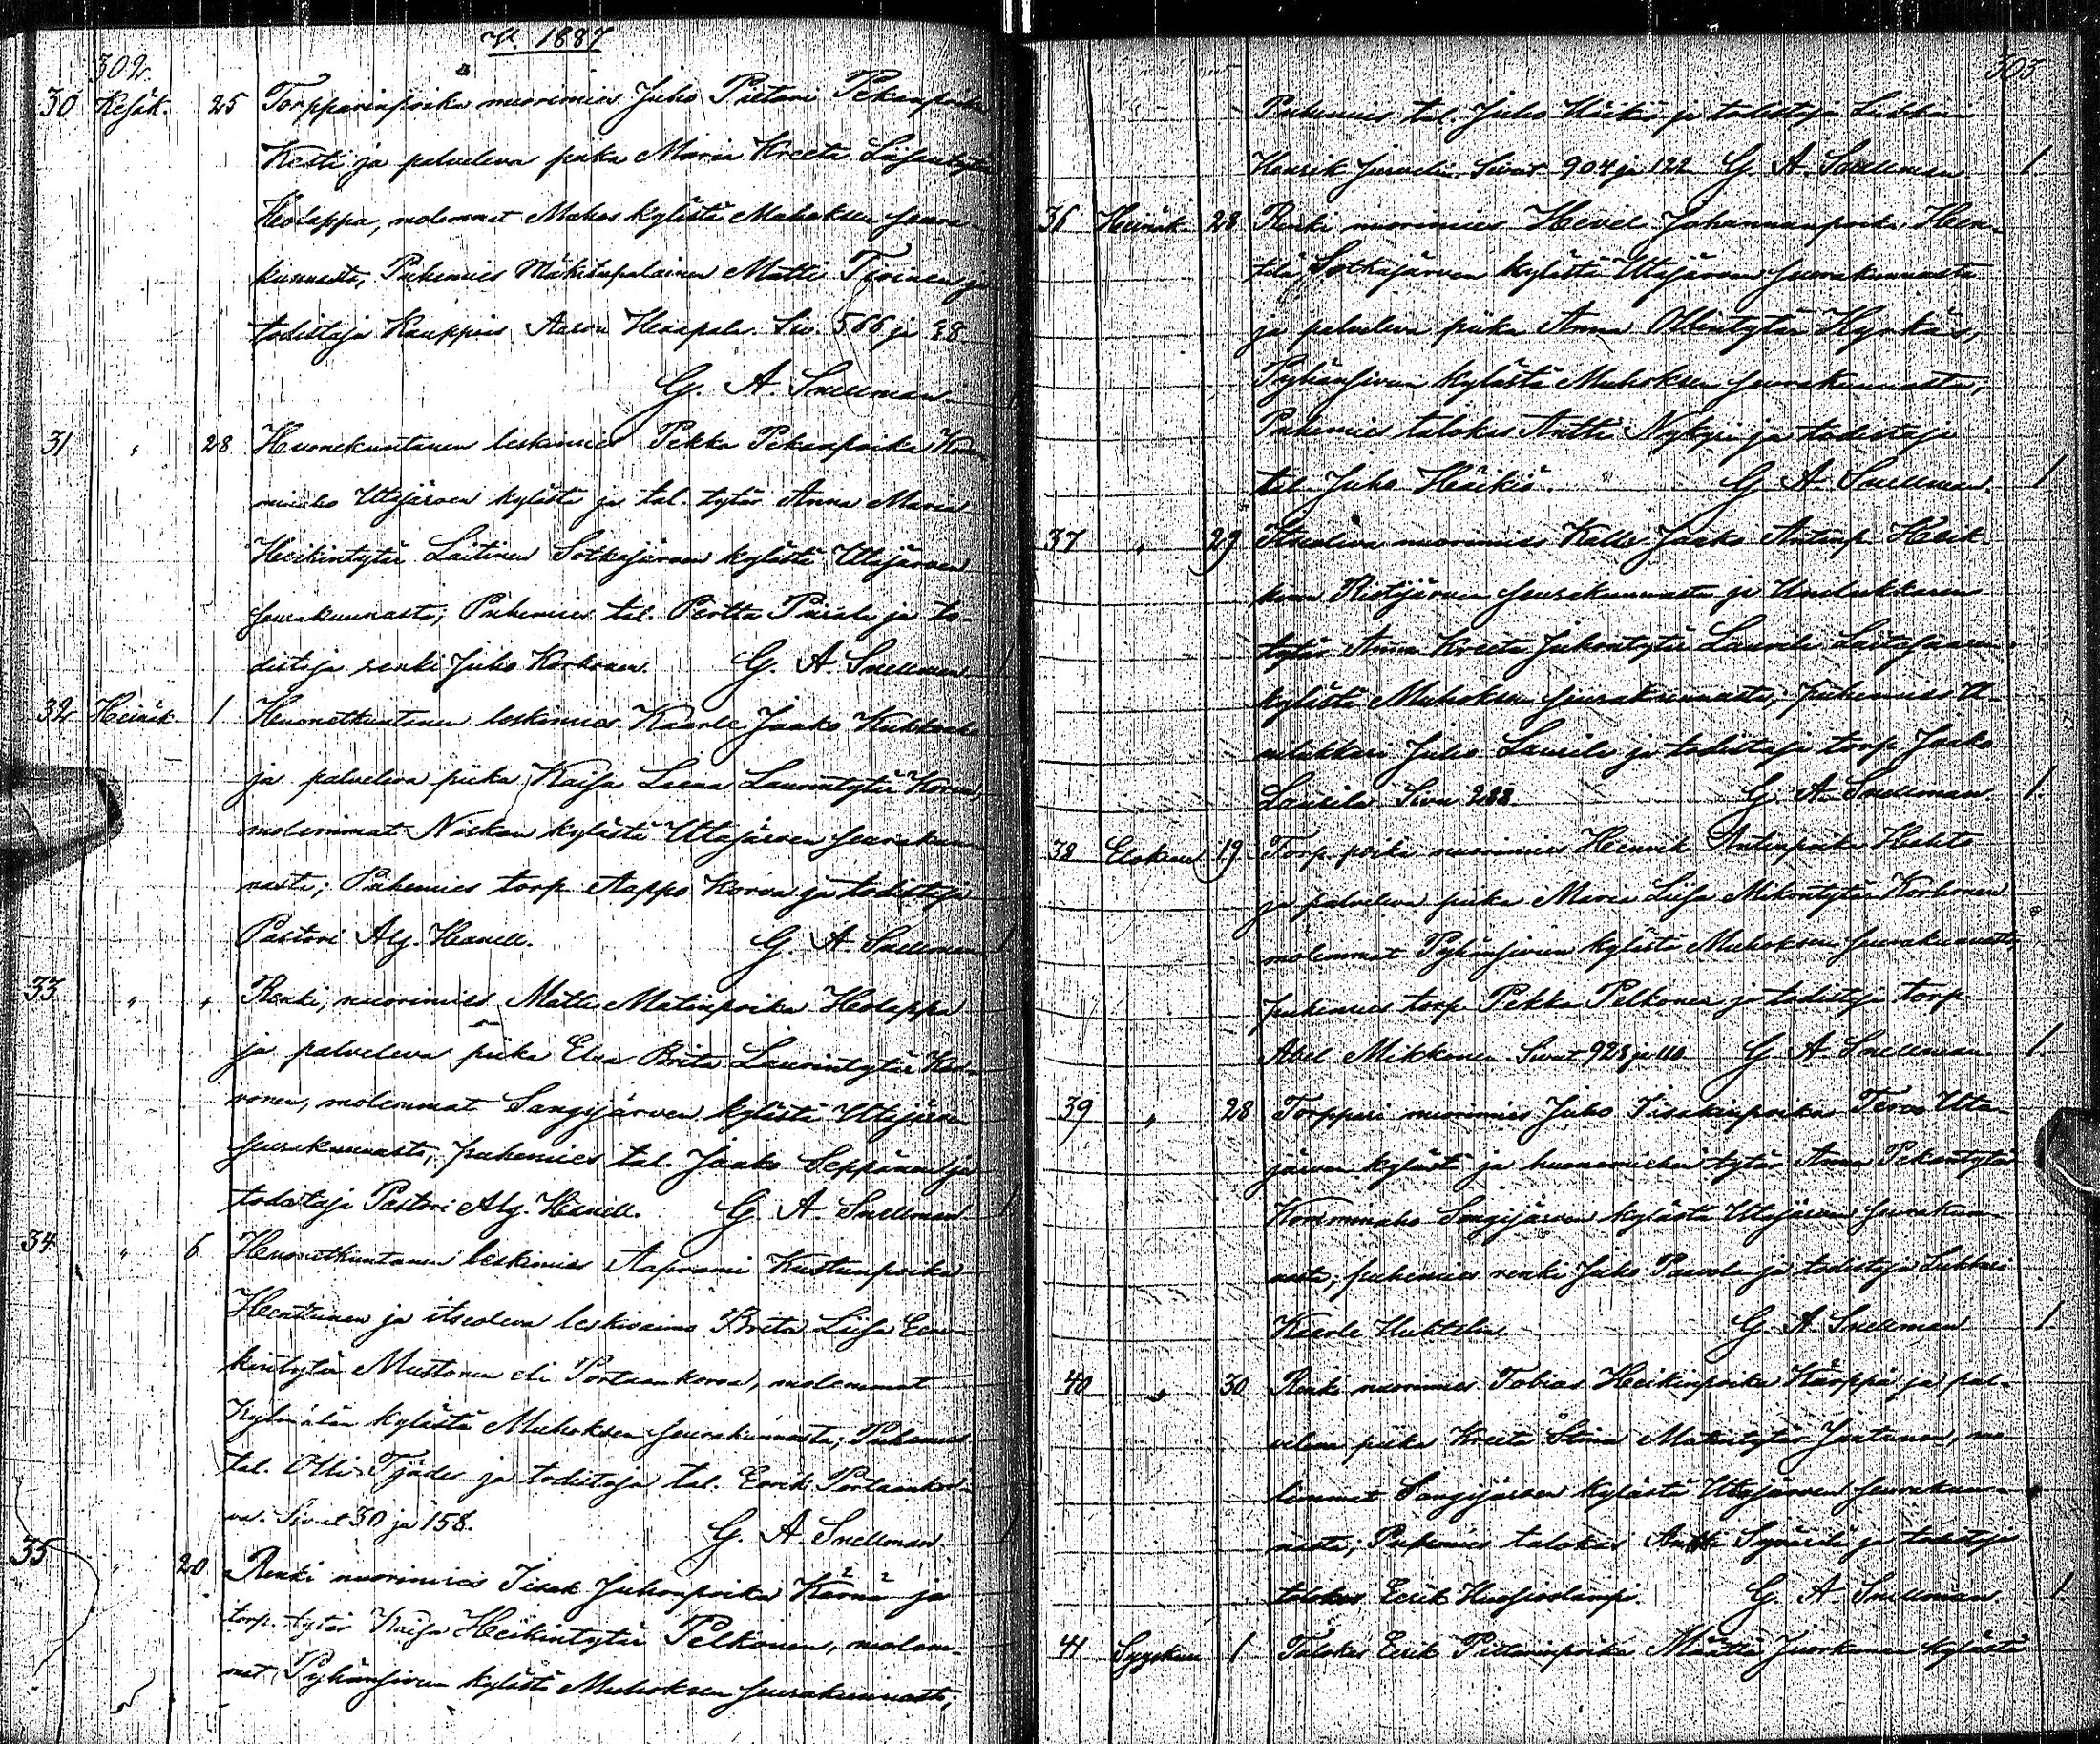 V. 1887
302.
30 Kesäk. 25 Torpparinpoika nuorimies Juho Pietari Pekanpoika
Kesti ja palveleva piika Maria Kreeta
Holappa, molemmat Muhos kylästä Muhoksen seura-
kunnasta, Puhemies Mäkitupalainen Matti Tervinen ja
todistaja Kauppias Aaron Haapala. Siv. 566 ja 28
G. A. Snellman
31 " 28 Huonekuntanen leskimies Pekka Pekanpoika
Utajärven kylästä ja tal. tytär Anna Maria
Heikintytär Laitinen Sotkajärven kylästä Utajärven
seurakunnasta; Puhemies tal. Pertta ja to-
distaja renki Juho Korhonen. G. A. Snellman
32 Heinäk. 1 Huonetkuntanen leskimies Kaarle Jaako
ja palveleva piika Kaisa Leena Laurintytär Korva,
molemmat Niskan kylästä Utajärven seurakun-
nasta; Puhemies torp. Aappo Korva ja todistaja
Pastori Alg. Hanell. G. A. Snellman 1
33 " " Renki, nuorimies Matti Matinpoika Holappa
ja palveleva piika Elsa Brita Laurintytär Ker-
vonen, molemmat Sangijärven kylästä Utajärven
seurakunnasta; puhemies tal. Jaako Seppänen ja
todistaja Pastori Alg. Hanell. G. A. Snellman 1
34 " 6 Huonetkuntanen leskimies Aaprami Kustunpoika
Henttunen ja itseoleva leskivaimo Brita Liisa Eer-
kintytär Mustonen eli Portaankorva, molemmat
Kylmälän kylästä Muhoksen seurakunnasta; Puhemies
tal. Olli Tjäder ja todistaja tal. Eerik Portaankor-
va. Sivut 30 ja 158. G. A. Snellman 1
35 " 20 Renki nuorimies Iisak Juhonpoika Kärnä ja
torp. tytär Kaisa Heikintytär Pelkonen, molem-
mat Pyhänsivun kylästä Muhoksen seurakunnasta;
303
Puhemies tal. Juho Häikiö ja todistaja Lukkari
Henrik Juvelin. Sivut 904 ja 122 G. A. Snellman 1.
36 Heinäk. 28 Renki nuorimies Hevel Johannanpoika Hen-
tilä Sotkajärven kylästä Utajärven seurakunnasta
ja palveleva piika Anna Ollintytär Hyrkäs,
Pyhänsivun kylästä Muhoksen seurakunnasta;
Puhemies talokas Antti Nykyri ja todistaja
tal. Juho Häikiö. G. A. Snellman. 1
37 " 29 Itseoleva nuorimies Kalle Jaako Antinp. Heik-
kinen Ristijärven seurakunnasta ja Unilukkarin
tytär Anna Kreeta Juhontytär Laurila Laitasaaren
kylästä Muhoksen seurakunnasta; puhemies U-
nilukkari Juho Laurila ja todistaja torp. Jaako
Laurila Sivu 288. G. A. Snellman 1.
38 Elokuu 19 Torp. poika nuorimies Heinrik Antinpoika Hehto
ja palveleva piika Maria Liisa Mikontytär Korhonen
molemmat Pyhänsivun kylästä Muhoksen seurakunnasta,
puhemies torp. Pekka Pelkonen ja todistaja torp.
Abel Mikkonen. Sivut 928 ja 110. G. A. Snellman 1.
39 " 28 Torppari nuorimies Juho Iisakinpoika Tervo Uta-
järven kylästä ja huonemiehen tytär Anna Pekantytär
Kormunaho Sangijärven kylästä Utajärven seurakun-
nasta; puhemies renki Juho Paavola ja todistaja Lukkari
Kaarle Huhtelin. G. A. Snellman 1.
40 " 30 Renki nuorimies Tobias Heikinpoika Kärppä ja pal-
veleva piika Kreeta Stina Matintytär Juntunen, mo-
lemmat Sangijärven kylästä Utajärven seurakun-
nasta; Puhemies talokas Antti ja todistaja
talokas Eerik G. A. Snellman 1.
41 Syyskuu 1 Talokas Eerik Pietarinpoika Määttä Juorkunan kylästä